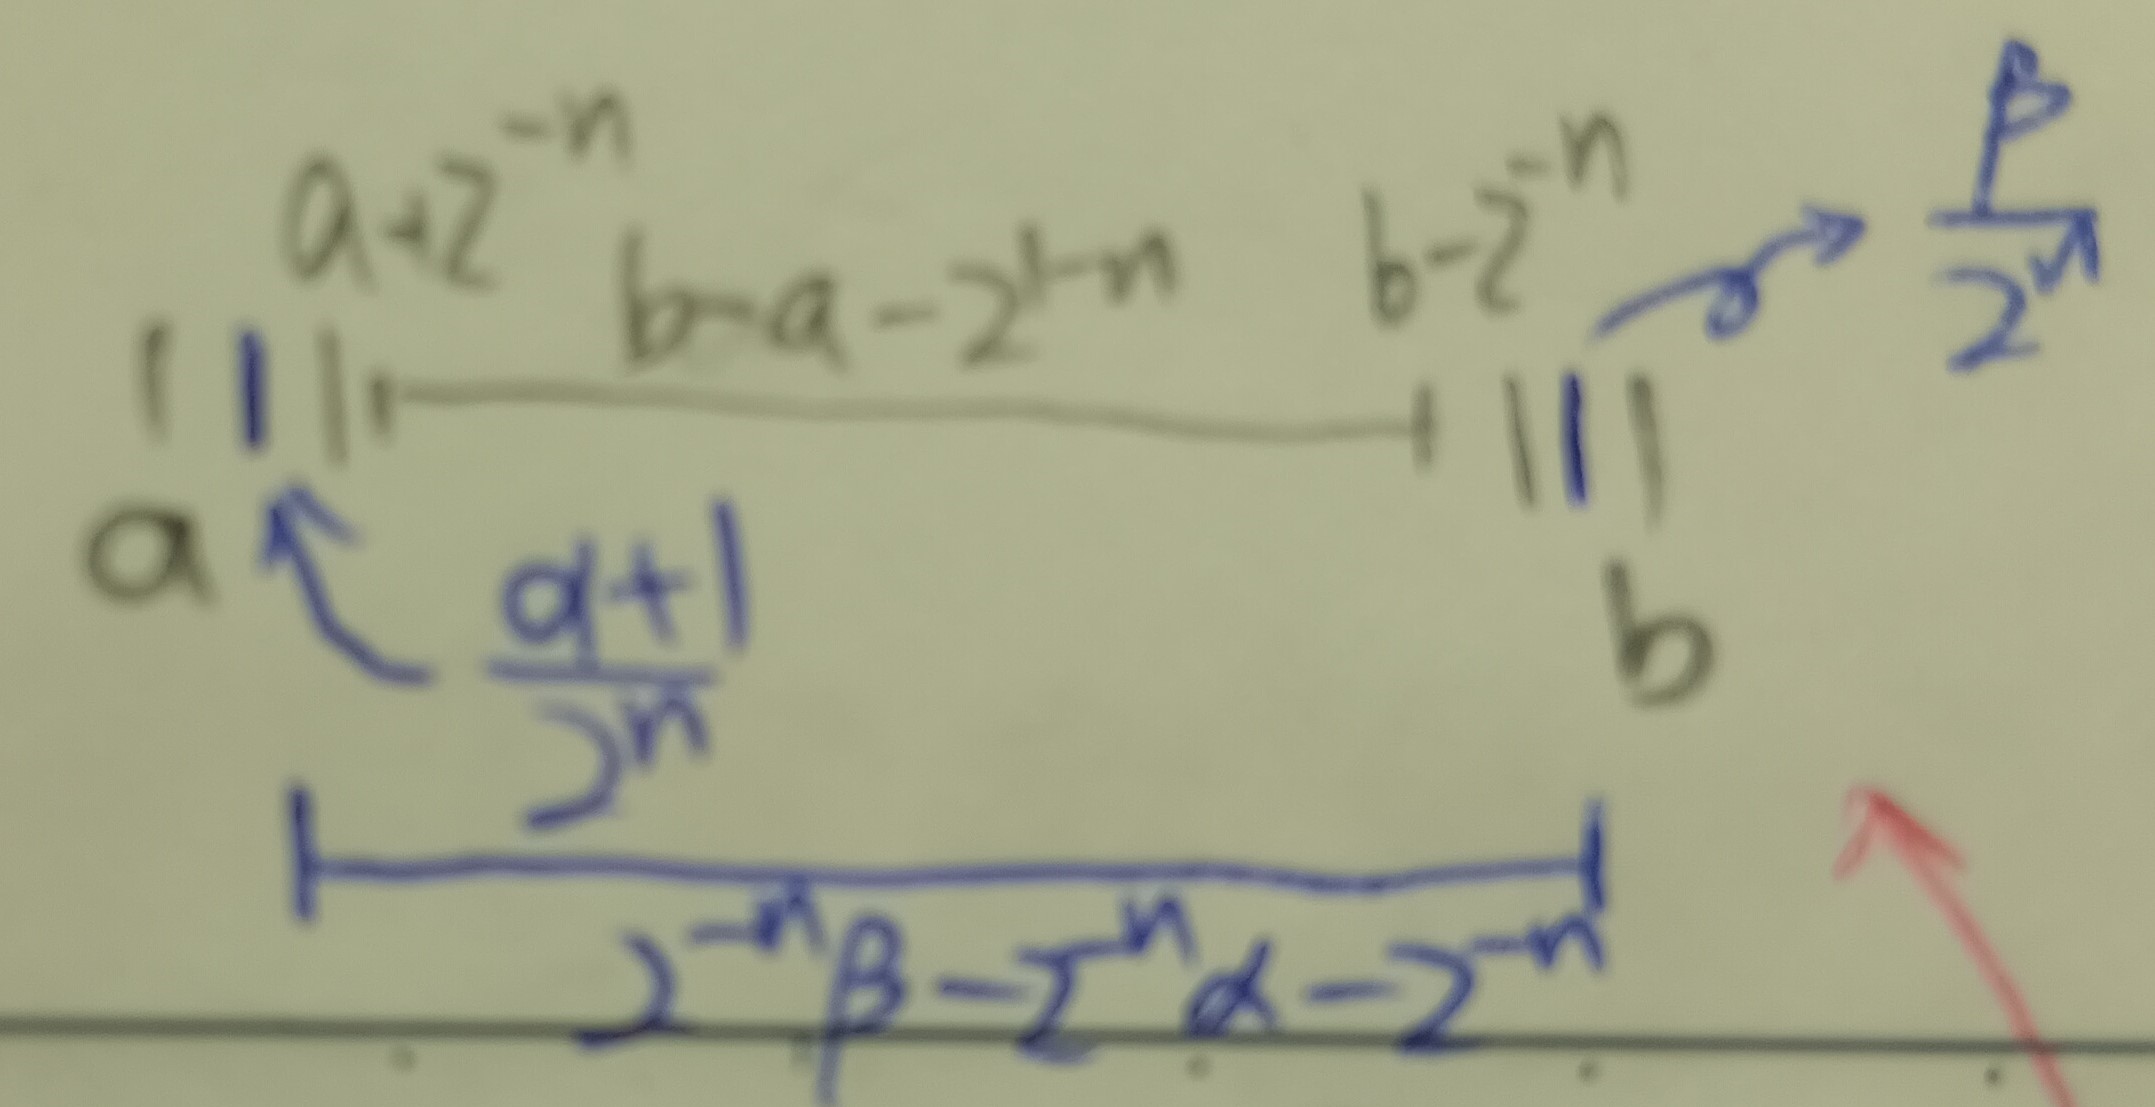 a+2^{-n}
b-a-2^{1-n}
b-2^{-n}
β/2^n
a
(α+1)/2^n
b
2^{-n}β-2^{-n}α-2^{-n}